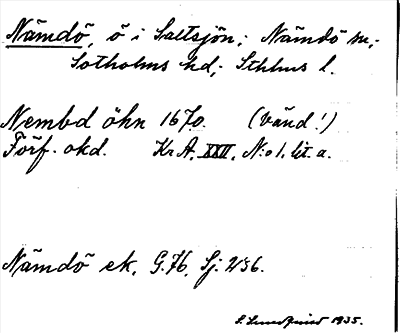 Nämdö, ö i Saltsjön; Nämdö sn,
Sotholms hd; Sthlms l.
Nembd öhn 1670. (vänd!)
Förf. okd. Kr A. XXII. N:o 1. lit. a.
Nämdö ek. G.76. Sj:
1935.